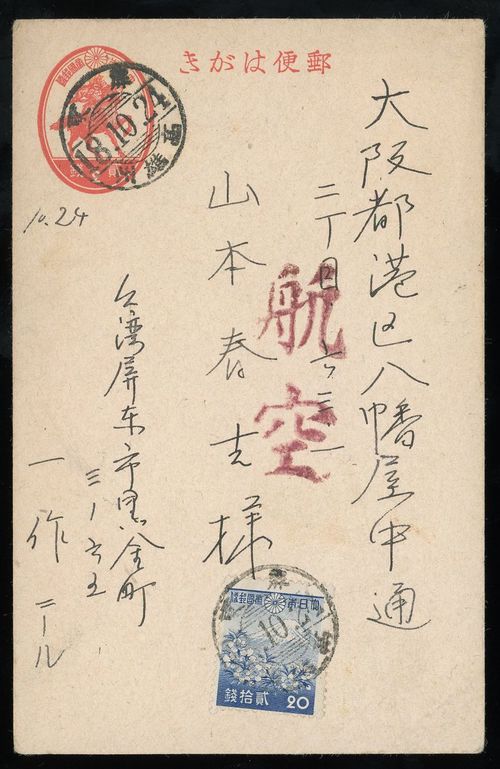 きがは便郵
18.10.24
10.24
大阪都港区八幡屋中通
二丁目六三一
山本春吉様
航空
台湾屏东市黒金町
三ノ六五
一作
ニール
大日本帝國郵便
10.24
錢拾貳
20